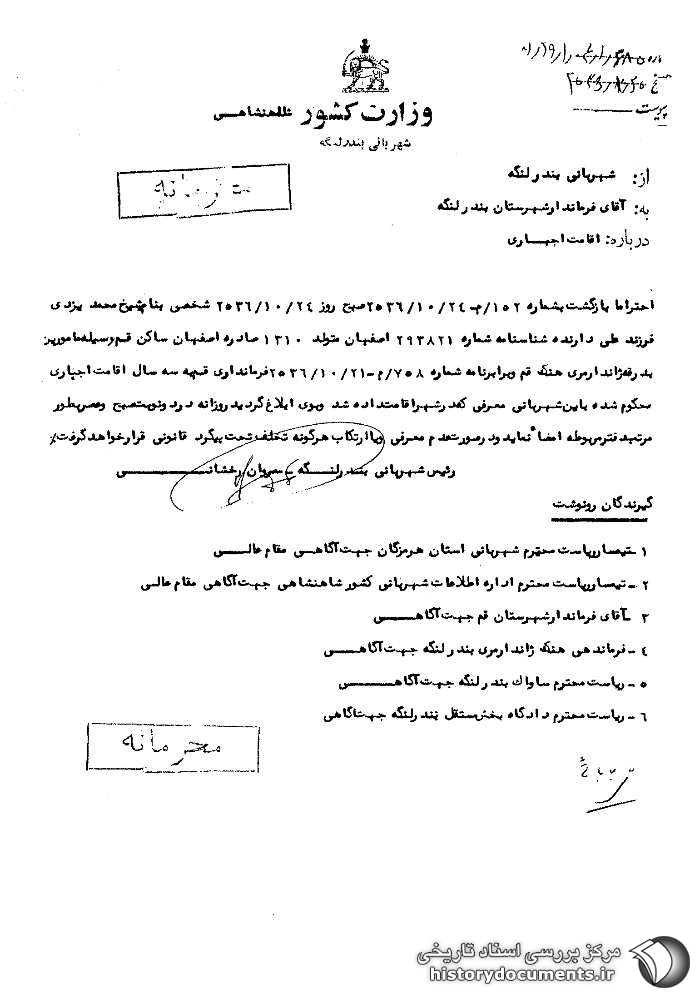 وزارت کشور شاهنشاهی
شهربانی بندرلنگه
محرمانه
از: شهربانی بندرلنگه
به: آقای فرماندارشهرستان بندرلنگه
درباره: اقامت اجباری
پیوست
احتراما بازگشت بشماره ۱۵۲/م-۲۵۳۶/۱۰/۲۴ صبح روز ۲۵۳۶/۱۰/۲۴ شخصی بنام شیخ محمد یزدی
فرزند علی دارنده شناسنامه شماره ۲۹۳۸۲۱ اصفهان متولد ۱۳۱۰ صادره اصفهان ساکن قم وسیله مامورین
بدرقه ژاندارمری هنگ قم وبرابرنامه شماره ۷۵۸/م-۲۵۳۶/۱۰/۲۱ فرمانداری قم به سه سال اقامت اجباری
محکوم شده باین شهربانی معرفی که در شهر اقامت داده شد وبوی ابلاغ گردید روزانه در دو نوبت صبح و عصر بطور
مرتب دفتر مربوطه امضاء نماید و در صورت عدم معرفی ویا ارتکاب هرگونه تخلف تحت پیگرد قانونی قرار خواهد گرفت٪
رئیس شهربانی بندرلنگه
گیرندگان رونوشت
۱ -تیمسار ریاست محترم شهربانی استان هرمزگان جهت آگاهی مقام عالی
۲ -تیمسار ریاست محترم اداره اطلاعات شهربانی کشور شاهنشاهی جهت آگاهی مقام عالی
۳ -آقای فرماندارشهرستان قم جهت آگاهی
۴ -فرماندهی هنگ ژاندارمری بندرلنگه جهت آگاهی
۵ -ریاست محترم ساواک بندرلنگه جهت آگاهی
۶ -ریاست محترم دادگاه بخش مستقل بندرلنگه جهت آگاهی
محرمانه
مرکز بررسی اسناد تاریخی
historydocuments.ir